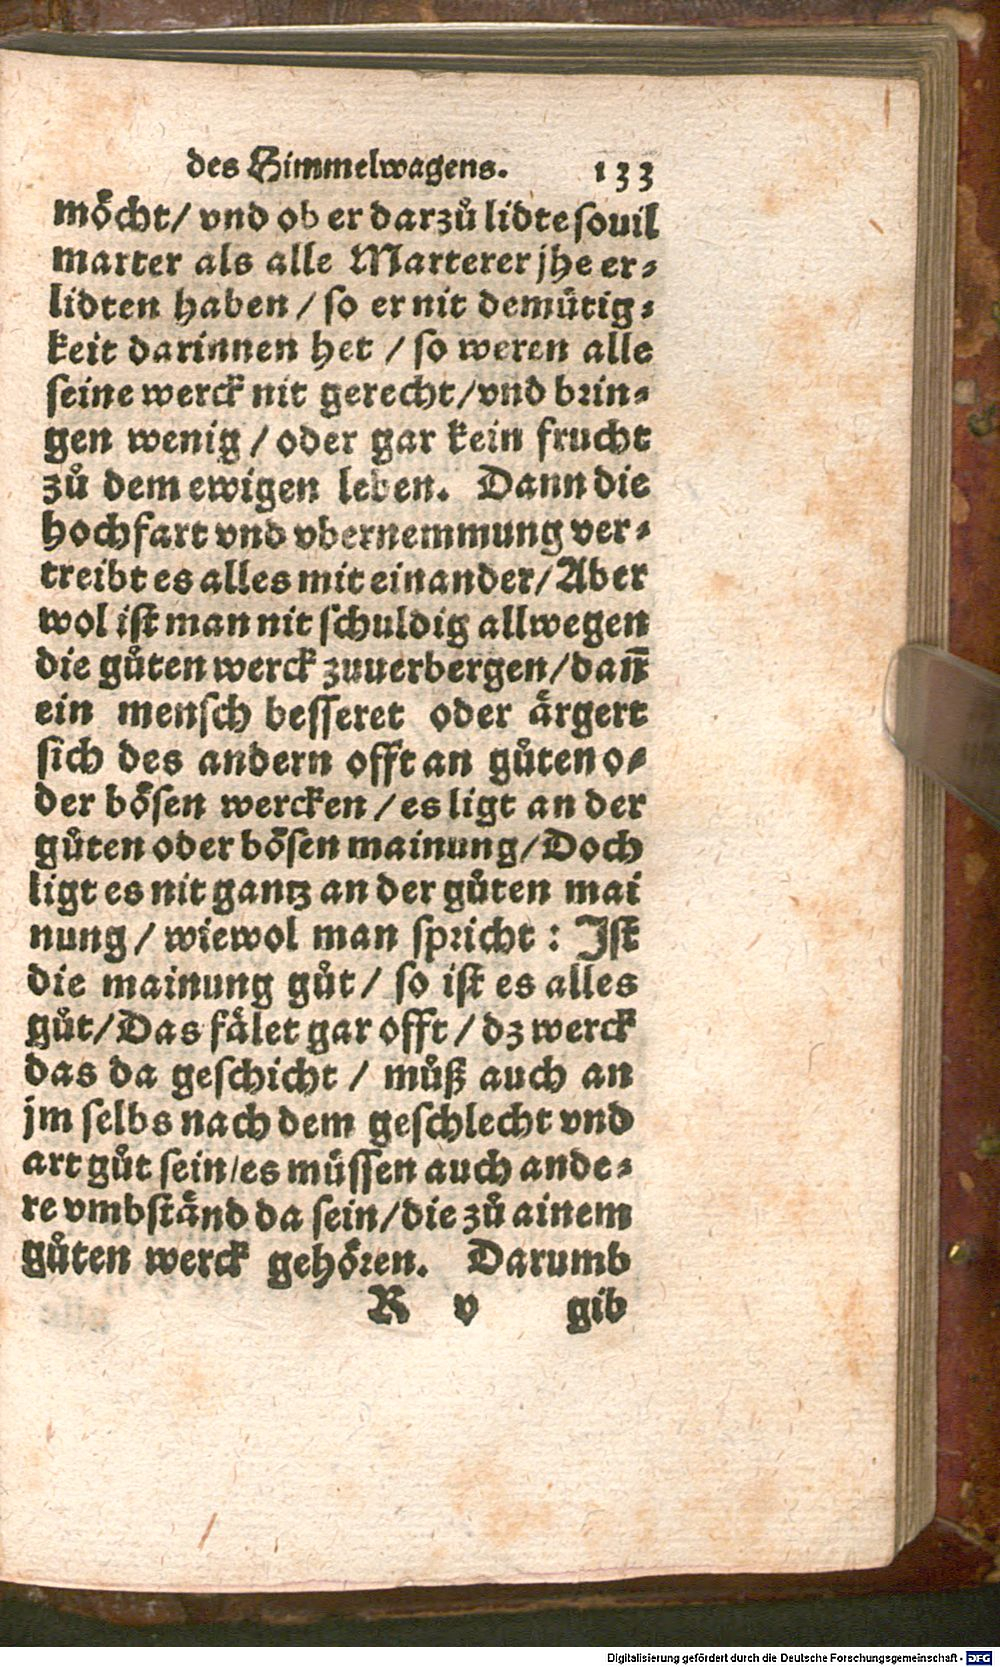 des Himmelwagens. 133
möcht/ vnd ob er darzuͦ lidte souil
marter als alle Marterer jhe er⸗
lidten haben / so er nit demuͤtig⸗
keit darinnen het / so weren alle
seine werck nit gerecht/vnd brin⸗
gen wenig / oder gar kein frucht
zuͦ dem ewigen leben. Dann die
hochfart vnd vbernemmung ver⸗
treibt es alles mit einander/Aber
wol ist man nit schuldig allwegen
die guͦten werck zuuerbergen/dañ
ein mensch besseret oder aͤrgert
sich des andern offt an guͦten o⸗
der boͤsen wercken / es ligt an der
guͦten oder boͤsen mainung/Doch
ligt es nit gantz an der guͦten mai
nung / wiewol man spricht : Ist
die mainung guͦt / so ist es alles
guͦt/Das faͤlet gar offt / dz werck
das da geschicht / muͦß auch an
jm selbs nach dem geschlecht vnd
art guͦt sein/es muͤssen auch ande⸗
re vmbstaͤnd da sein/die zuͦ ainem
guͦten werck gehoͤren. Darumb
R v gib
Digitalisierung gefördert durch die Deutsche Forschungsgemeinschaft - DFG